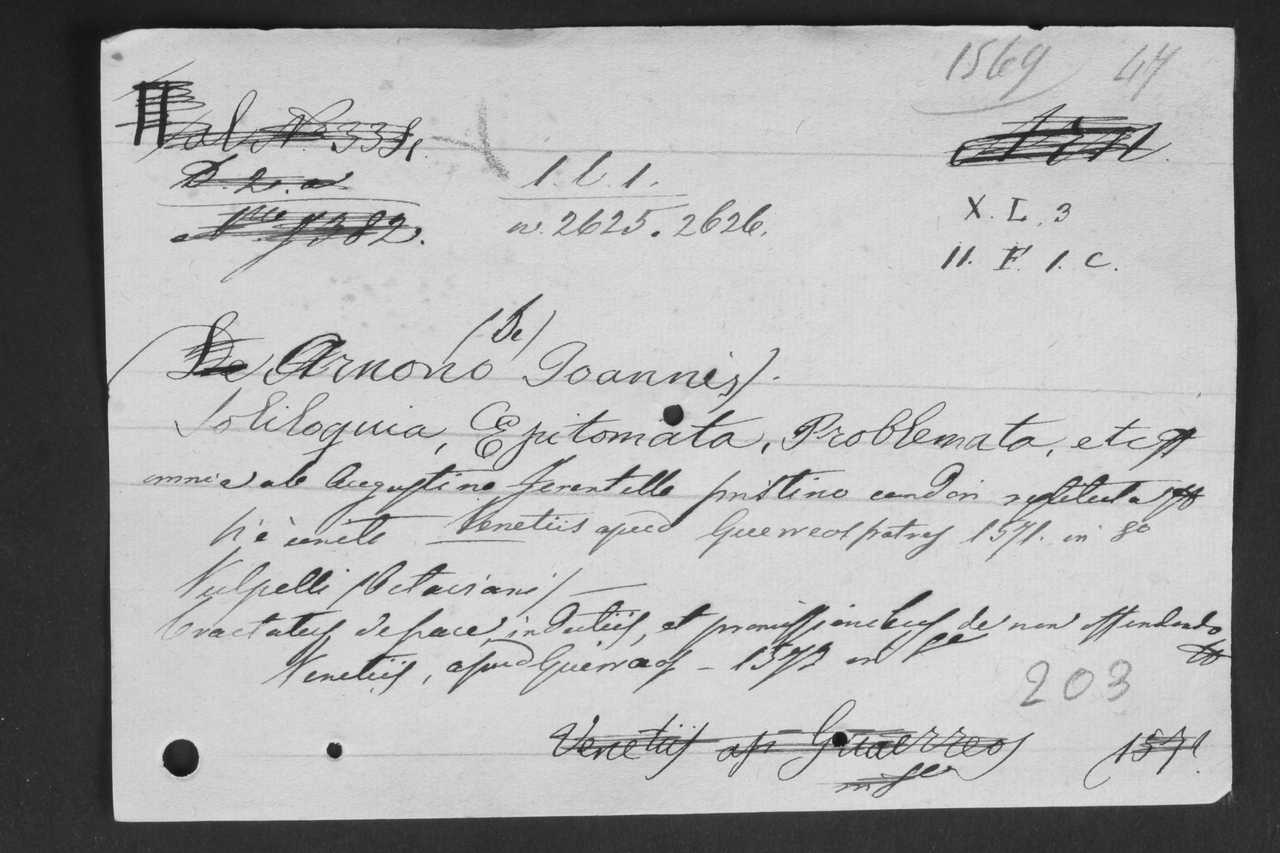 1569 47
Sal N. 338.
D 2. a
1. b. 1.
7382.
n. 2625. 2626.
X. L. 3
11. F. 1. C.
(De)
(De Arnono Joannis).
Soliloquia, Epitomata, Problemata, etc
omnia ab Augustino Ferentillo pristino candori restituta
v'è unito Venetiis apud Guerreos fratres 1571. in 8o
Vulpelli (Octaviani) —
Tractatus de pace, indutiis, et promissionibus de non offendendo
Venetiis, apud Guerraeos - 1573 in 8o
203
Venetiis ap. Guaerreos 1571
in 8o